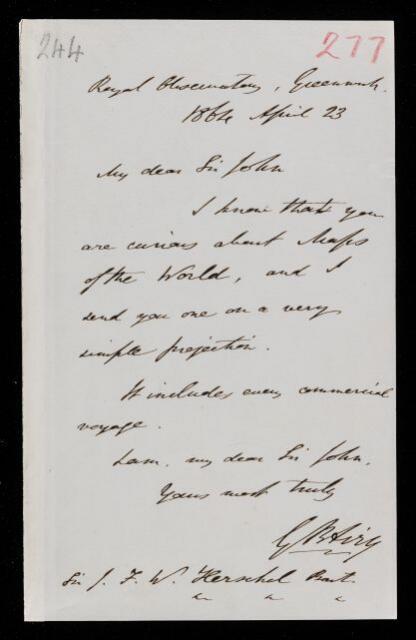 244
277
Royal Observatory, Greenwich.
1864 April 23
My dear Sir John
I know that you
are curious about Maps
of the World, and I
send you one on a very
simple projection.
It includes every commercial
voyage.
I am, my dear Sir John,
Yours most truly
G B Airy
Sir J. F. W. Herschel Bart.